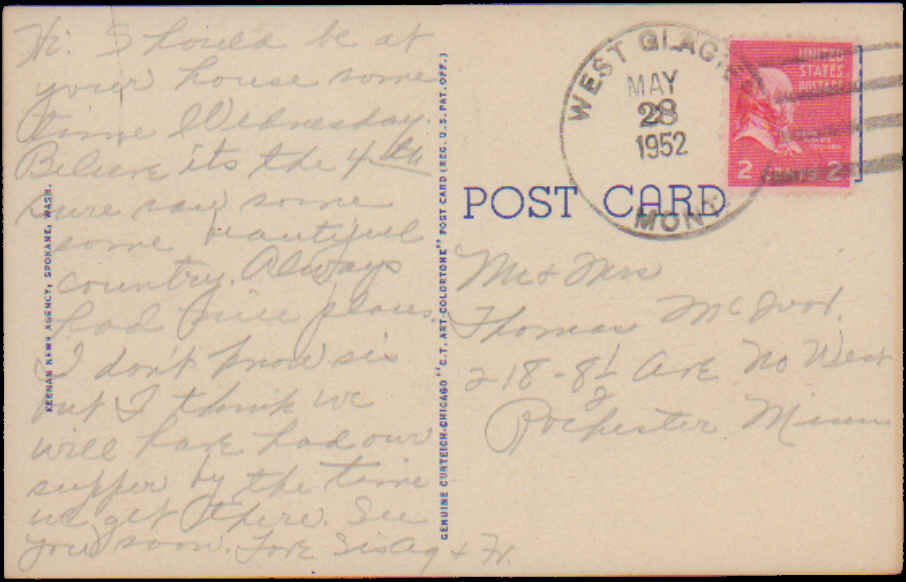 Hi. Should be at
your house some
time Wednesday.
Believe its the 4th
sure saw some
some beautiful
country. Always
had nice places.
I dont know sis
but I think we
will have had our
supper by the time
we get there. See
you soon. Love Sis
KEENAN NEWS AGENCY, SPOKANE, WASH.
GENUINE CURTEICH-CHICAGO "C.T. ART-COLORTONE" POST CARD (REG. U.S. PAT. OFF.)
POST CARD
WEST GLACIER
MAY
28
1952
MONT.
UNITED
STATES
POSTAGE
2 CENTS 2
Mr & Mrs
Thomas
218-8½ Ave No West
Rochester Minn